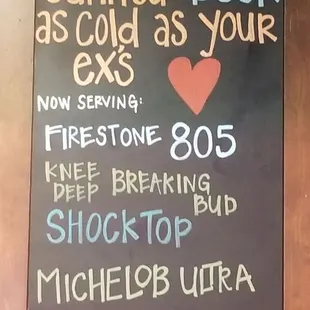 as cold as your
ex's
NOW SERVING:
FIRESTONE 805
KNEE DEEP BREAKING BUD
SHOCKTOP
MICHELOB ULTRA